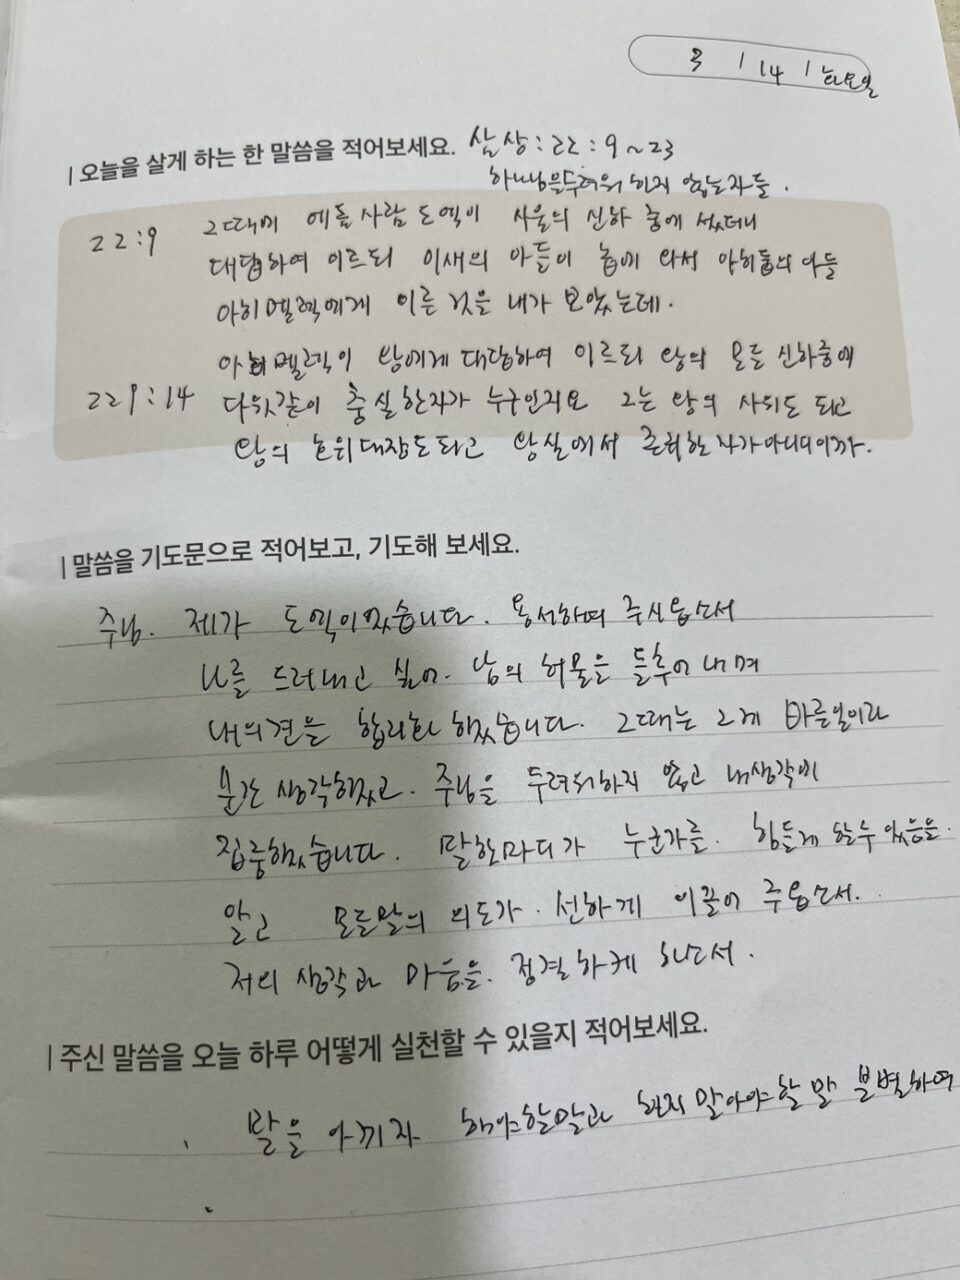 3 / 14 / 화요일
| 오늘을 살게 하는 한 말씀을 적어보세요. 삼상 : 22 : 9 ~ 23
하나님을 두려워 하지 않는자들.
22:9 그때에 에돔 사람 도엑이 사울의 신하 중에 섰더니
대답하여 이르되 이새의 아들이 놉에 와서 아히둡의 아들
아히멜렉에게 이른 것을 내가 보았는데.
아히멜렉이 왕에게 대답하여 이르되 왕의 모든 신하중에
22:14 다윗같이 충실한자가 누구인지요 그는 왕의 사위도 되고
왕의 호위대장도되고 왕실에서 존귀한 자가아니니이까.
| 말씀을 기도문으로 적어보고, 기도해 보세요.
주님. 제가 도엑이었습니다. 용서하여 주시옵소서
나를 드러내고 싶어. 남의 허물을 들추어 내며
내의견을 합리화 했습니다. 그때는 그게 바른일이라
생각했고. 주님을 두려워하지 않고 내생각에
집중했습니다. 말한마디가 누군가를. 힘들게 할수 있음을.
알고 모든말의 의도가. 선하게 이끌어 주옵소서.
저의 생각과 마음을. 정결하게 하소서.
| 주신 말씀을 오늘 하루 어떻게 실천할 수 있을지 적어보세요.
. 말을 아끼자 해야할말과 하지 말아야할 말 분별하여